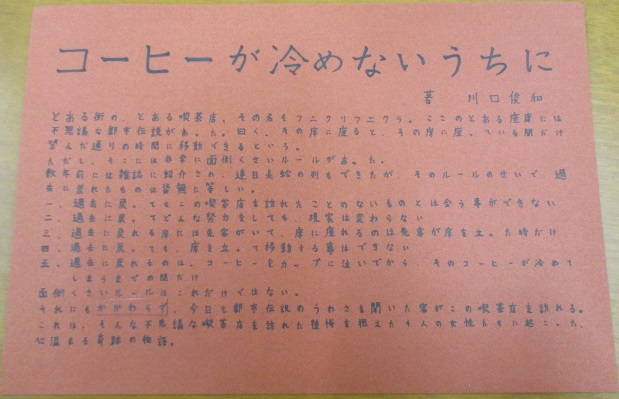 コーヒーが冷めないうちに
著　川口俊和
とある街の、とある喫茶店、その名もフニクリフニクラ。ここのとある座席には
不思議な都市伝説があった。曰く、その席に座ると、その席に座っている間だけ
望んだ通りの時間に移動できるという。
ただし、そこには非常に面倒くさいルールがあった。
数年前には雑誌に紹介され、連日長蛇の列もできたが、そのルールのせいで、過
去に戻れたものは皆無に等しい。
一、過去に戻っても、この喫茶店を訪れたことのないものとは会う事ができない
二、過去に戻って、どんな努力をしても、現実は変わらない
三、過去に戻れる席には先客がいて、席に座れるのは先客が席を立った時だけ
四、過去に戻っても、席を立って移動する事はできない
五、過去に戻れるのは、コーヒーをカップに注いでから、そのコーヒーが冷めて
しまうまでの間だけ
面倒くさいルールはこれだけではない。
それにもかかわらず、今日も都市伝説のうわさを聞いた客がこの喫茶店を訪れる。
これは、そんな不思議な喫茶店を訪れた後悔を抱えた4人の女性たちに起こった、
心温まる奇跡の物語。